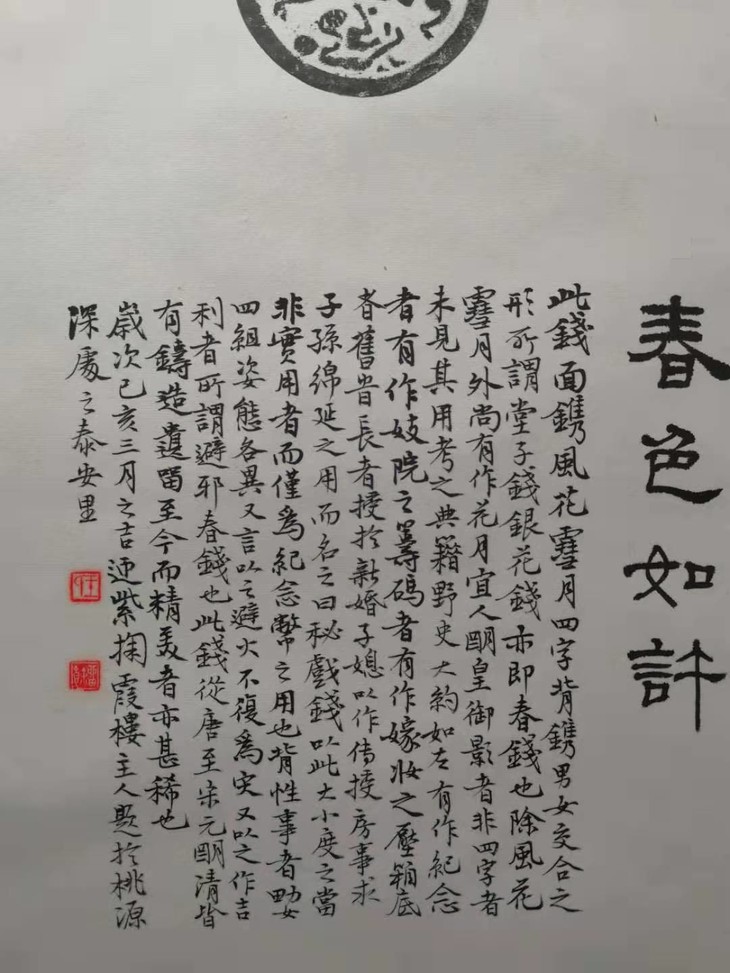 春色如許
此錢面鐫風花䨮月四字背鐫男女交合之
形所謂堂子錢銀花錢亦即春錢也除風花
䨮月外尚有作花月宜人朙皇御影者非四字者
未見其用考之典籍野史大約如左有作紀念
者有作妓院之籌碼者有作嫁妝之壓箱底
者舊昔長者授於新婚子媳以作傳授房事求
子孫綿延之用而名之曰秘戲錢以此大小度之當
非實用者而僅爲紀念幣之用也背性事者男女
四組姿態各異又言以之避火不復爲灾又以之作吉
利者所謂避邪春錢也此錢從唐至宋元朙清皆
有鑄造遺留至今而精美者亦甚稀也
歲次己亥三月之吉迎紫掬霞樓主人題於桃源
深處之泰安里